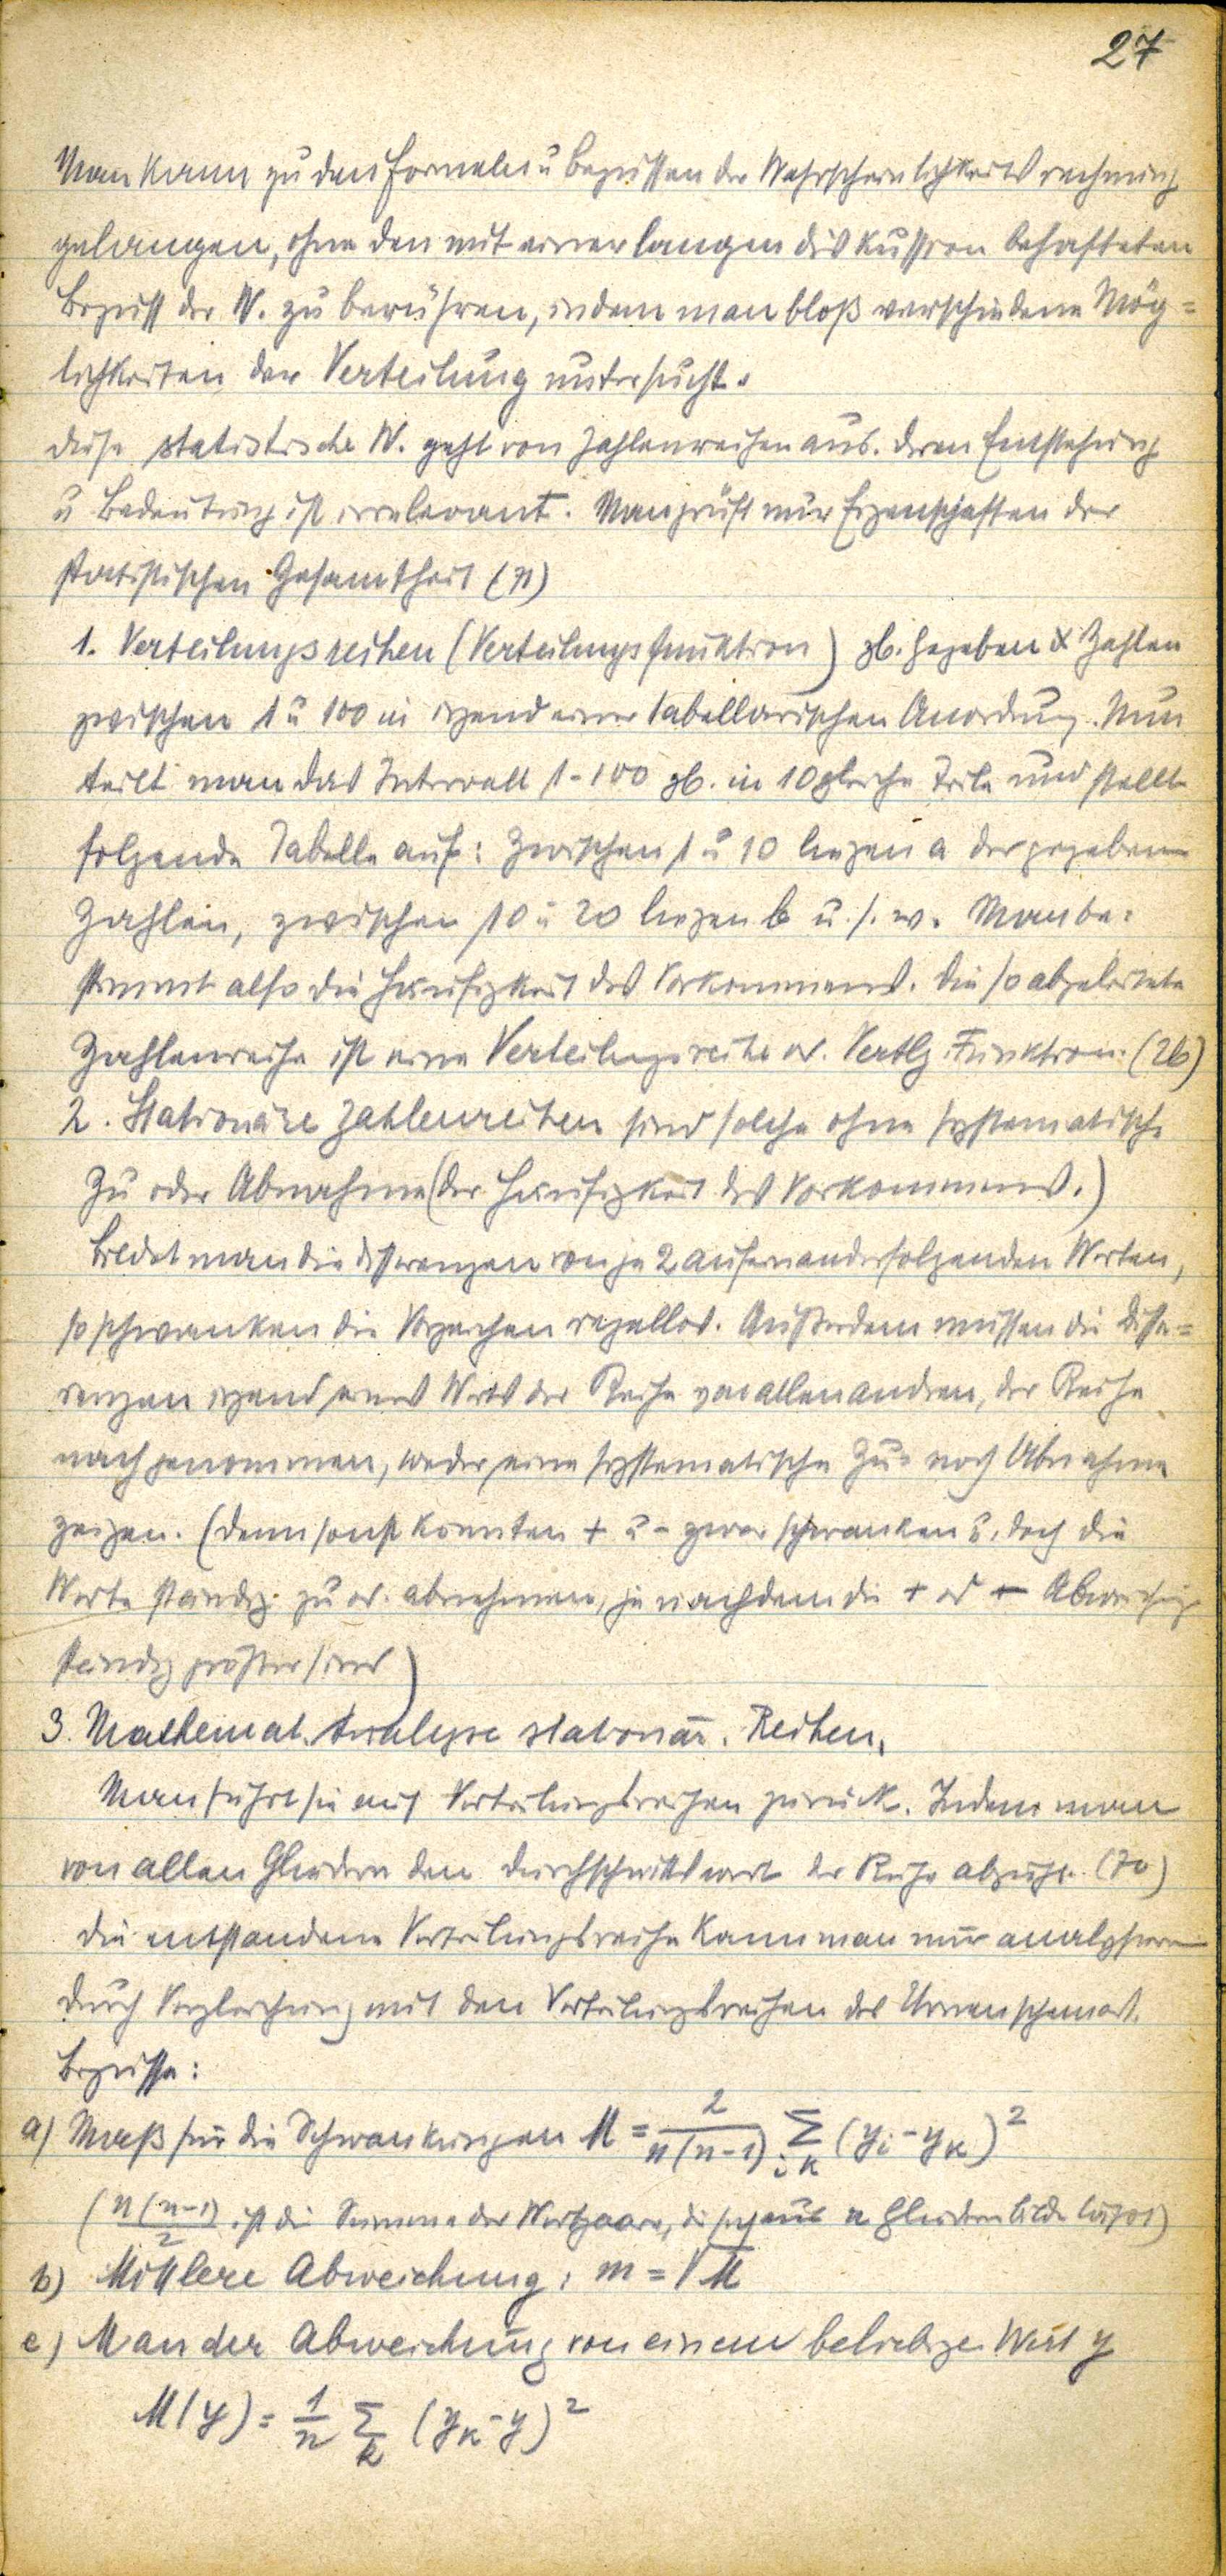 27
Man kann zu den Formeln u Begriffen der Wahrscheinlichkeitsrechnung
gelangen, ohne den mit einer langen Diskussion behafteten
Begriff der W. zu berühren, indem man bloß verschiedene Mög=
lichkeiten der Verteilung untersucht.
Diese statistische W. geht von Zahlenreihen aus. Deren Entstehung
u Bedeutung ist irrelevant. Man prüft nur Eigenschaften der
statistischen Gesamtheit (n)
1. Verteilungsreihen (Verteilungsfunktion) zb. Gegeben x Zahlen
zwischen 1 u 100 in irgend einer tabellarischen Anordnung. Nun
teilt man das Intervall 1-100 zb. in 10 gleiche Teile und stellt
folgende Tabelle auf: Zwischen 1 u 10 liegen a der gegebenen
Zahlen, zwischen 10 u 20 liegen b u. s. w. Man be=
stimmt also die Häufigkeit des Vorkommens. Die so abgeleitete
Zahlenreihe ist eine Verteilungsreihe od. Vertlg. Funktion. (26)
2. Stationäre Zahlenreihen sind solche ohne systematische
Zu oder Abnahme (der Häufigkeit des Vorkommens.)
Bildet man die Differenzen von je 2 aufeinanderfolgenden Werten,
so schwanken die Vorzeichen regellos. Außerdem müssen die Diffe=
renzen irgend eines Werts der Reihe von allen andren, der Reihe
nach genommen, weder eine systematische Zu= noch Abnahme
zeigen. (Denn sonst könnten + u - zwar schwanken u. doch die
Werte ständig zu od. abnehmen, je nachdem die + od - Abweichung
ständig größer sind)
3. Mathemat. Analyse stationär. Reihen.
Man führt sie auf Verteilungsreihen zurück. Indem man
von allen Gliedern den Durchschnittswert der Reihe abzieht. (70)
Die entstandene Verteilungsreihe kann man nur analysieren
durch Vergleichung mit den Verteilungsreihen des Urnenschemas.
Begriffe:
a) Maß für die Schwankungen M = 2/n(n-1) Σ ik (yi - yk)²
(n(n-1)/2 ist die Summe der Wertpaare, die sich aus n Gliedern bilden läßt)
b) Mittlere Abweichung: m = √M
c) M an der Abweichung von einem beliebigen Wert y
M(y) = 1/n Σ k (yk - y)²